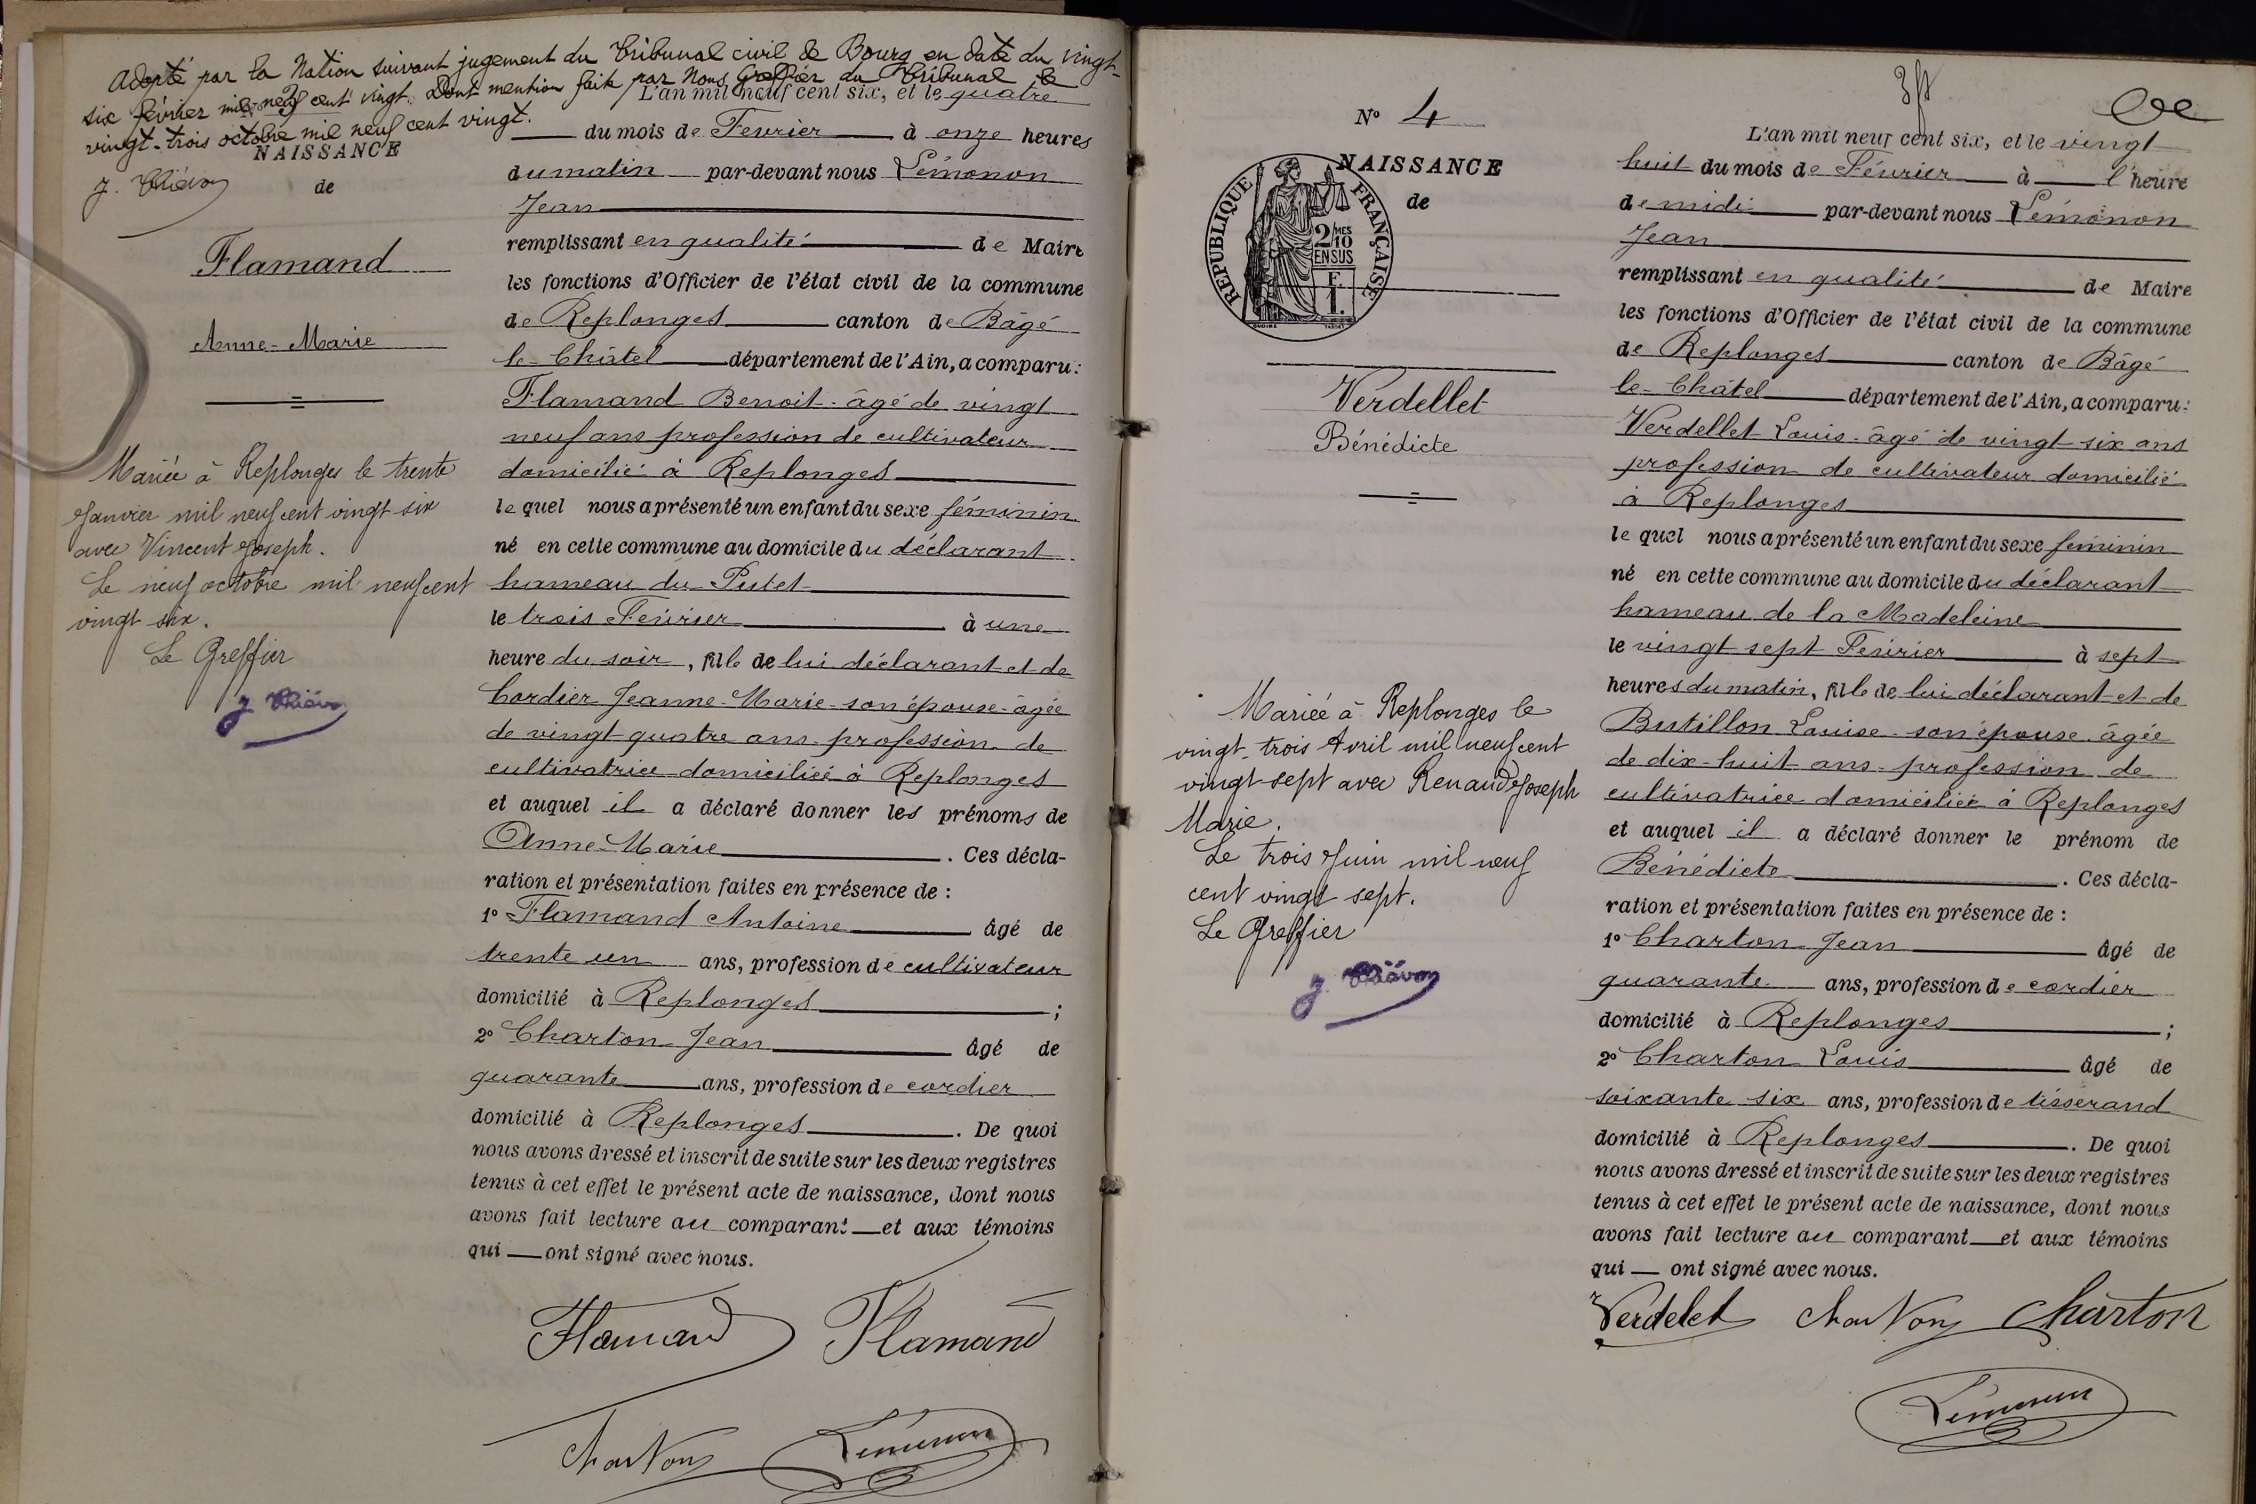 Adopté par la Nation suivant jugement du Tribunal civil de Bourg en date du vingt-
six février mil neuf cent vingt. Dont mention faite par Nous Greffier du Tribunal le
vingt-trois octobre mil neuf cent vingt.
NAISSANCE
de
Flamand
Anne-Marie
Mariée à Replonges le trente
Janvier mil neuf cent vingt six
avec Vincent Joseph.
Le neuf octobre mil neuf cent
vingt six.
Le Greffier
L'an mil neuf cent six, et le quatre
du mois de Février à onze heures
du matin par-devant nous Lémonon
Jean
remplissant en qualité de Maire
les fonctions d'Officier de l'état civil de la commune
de Replonges canton de Bâgé
le Châtel département de l'Ain, a comparu :
Flamand Benoit âgé de vingt
neuf ans profession de cultivateur
domicilié à Replonges
lequel nous a présenté un enfant du sexe féminin
né en cette commune au domicile du déclarant
hameau du Putet
le trois Février à une
heure du soir, fille de lui déclarant et de
Cordier Jeanne-Marie son épouse âgée
de vingt quatre ans profession de
cultivatrice domiciliée à Replonges
et auquel il a déclaré donner les prénoms de
Anne-Marie. Ces décla-
ration et présentation faites en présence de :
1° Flamand Antoine âgé de
trente un ans, profession de cultivateur
domicilié à Replonges ;
2° Charton Jean âgé de
quarante ans, profession de cordier
domicilié à Replonges. De quoi
nous avons dressé et inscrit de suite sur les deux registres
tenus à cet effet le présent acte de naissance, dont nous
avons fait lecture au comparant et aux témoins
qui ont signé avec nous.
Flamand Flamand
Charton Lémonon
N° 4
NAISSANCE
de
REPUBLIQUE FRANÇAISE
2/10 MES
EN SUS
F.
1.
Verdellet
Bénédicte
Mariée à Replonges le
vingt-trois Avril mil neuf cent
vingt-sept avec Renaud Joseph
Marie.
Le trois Juin mil neuf
cent vingt sept.
Le Greffier
L'an mil neuf cent six, et le vingt
huit du mois de Février à l'heure
de midi par-devant nous Lémonon
Jean
remplissant en qualité de Maire
les fonctions d'Officier de l'état civil de la commune
de Replonges canton de Bâgé
le Châtel département de l'Ain, a comparu :
Verdellet Louis âgé de vingt six ans
profession de cultivateur domicilié
à Replonges
lequel nous a présenté un enfant du sexe féminin
né en cette commune au domicile du déclarant
hameau de la Madeleine
le vingt sept Février à sept
heures du matin, fille de lui déclarant et de
Butillon Louise son épouse âgée
de dix-huit ans profession de
cultivatrice domiciliée à Replonges
et auquel il a déclaré donner le prénom de
Bénédicte. Ces décla-
ration et présentation faites en présence de :
1° Charton Jean âgé de
quarante ans, profession de cordier
domicilié à Replonges ;
2° Charton Louis âgé de
soixante six ans, profession de tisserand
domicilié à Replonges. De quoi
nous avons dressé et inscrit de suite sur les deux registres
tenus à cet effet le présent acte de naissance, dont nous
avons fait lecture au comparant et aux témoins
qui ont signé avec nous.
Verdelet Charton Charton
Lémonon